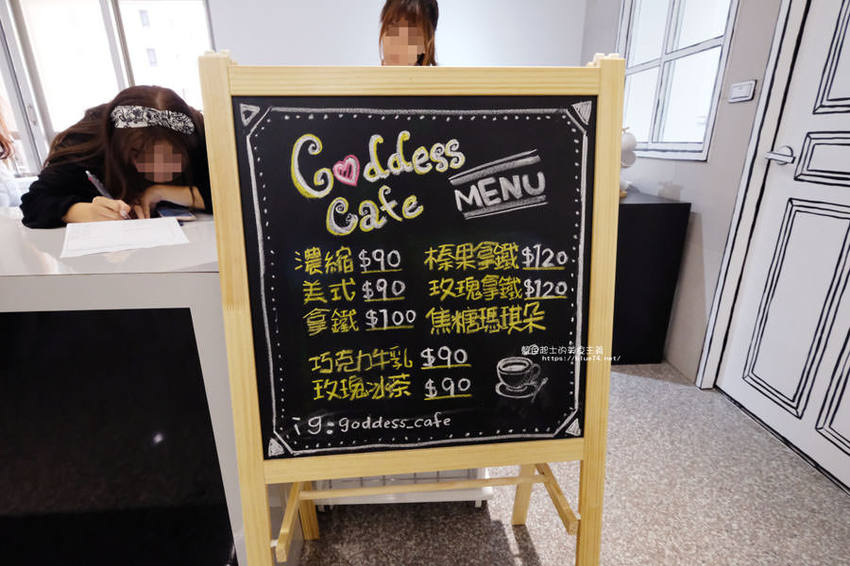 Goddess
Cafe
MENU
濃縮 $90
美式 $90
拿鐵 $100
榛果拿鐵 $120
玫瑰拿鐵 $120
焦糖瑪琪朵
巧克力牛乳 $90
玫瑰冰茶 $90
ig:goddess_cafe
https://blue74.net/